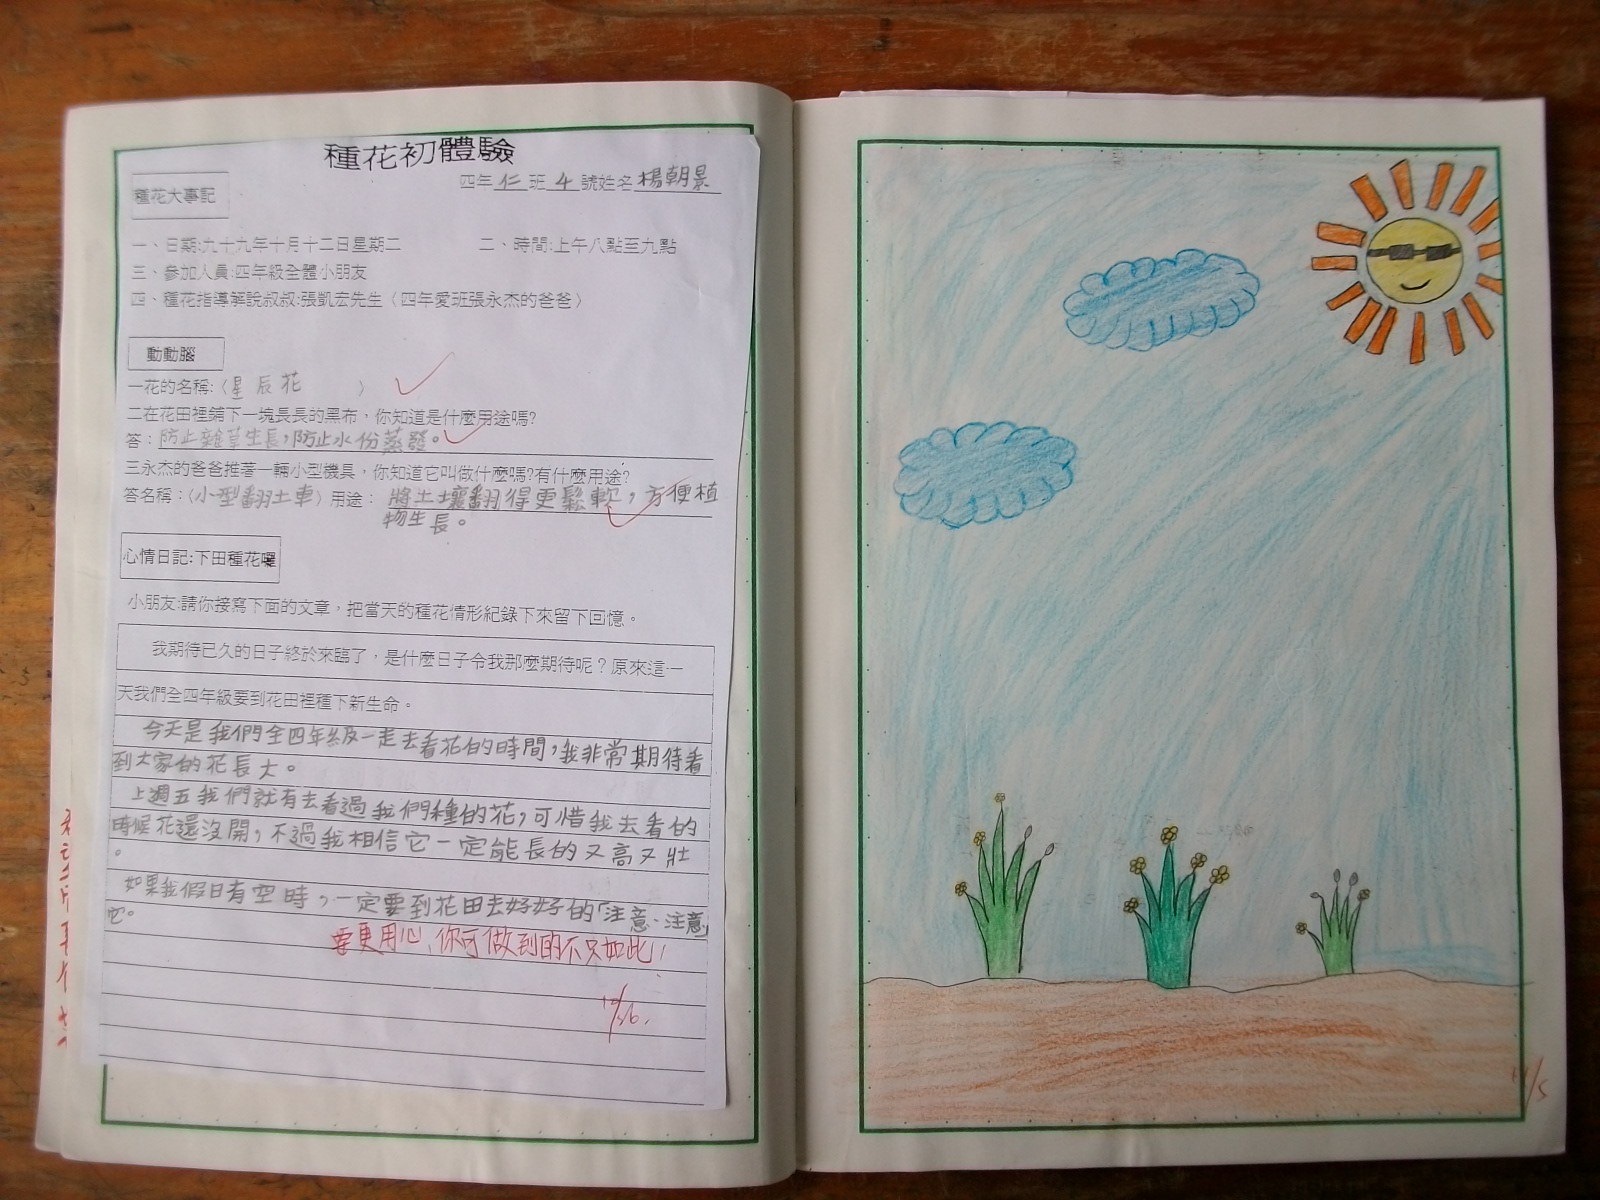 種花初體驗
四年仁班4號姓名楊朝景
種花大事記
一、日期:九十九年十月十二日星期二 二、時間:上午八點至九點
三、參加人員:四年級全體小朋友
四、種花指導解說叔叔:張凱宏先生（四年愛班張永杰的爸爸）
動動腦
一花的名稱:（星辰花 ）
二在花田裡鋪下一塊長長的黑布，你知道是什麼用途嗎?
答：防止雜草生長,防止水份蒸發。
三永杰的爸爸推著一輛小型機具，你知道它叫做什麼嗎?有什麼用途?
答名稱：（小型翻土車）用途：將土壤翻得更鬆軟，方便植
物生長。
心情日記:下田種花囉
小朋友:請你接寫下面的文章，把當天的種花情形紀錄下來留下回憶。
我期待已久的日子終於來臨了，是什麼日子令我那麼期待呢？原來這一
天我們全四年級要到花田裡種下新生命。
今天是我們全四年級一走去看花的時間,我非常期待看
到大家的花長大。
上週五我們就有去看過我們種的花,可惜我去看的
時候花還沒開,不過我相信它一定能長的又高又壯
。
如果我假日有空時,一定要到花田去好好的「注意、注意」
它。
要更用心、你可做到的不只如此!
10/26.
11/5